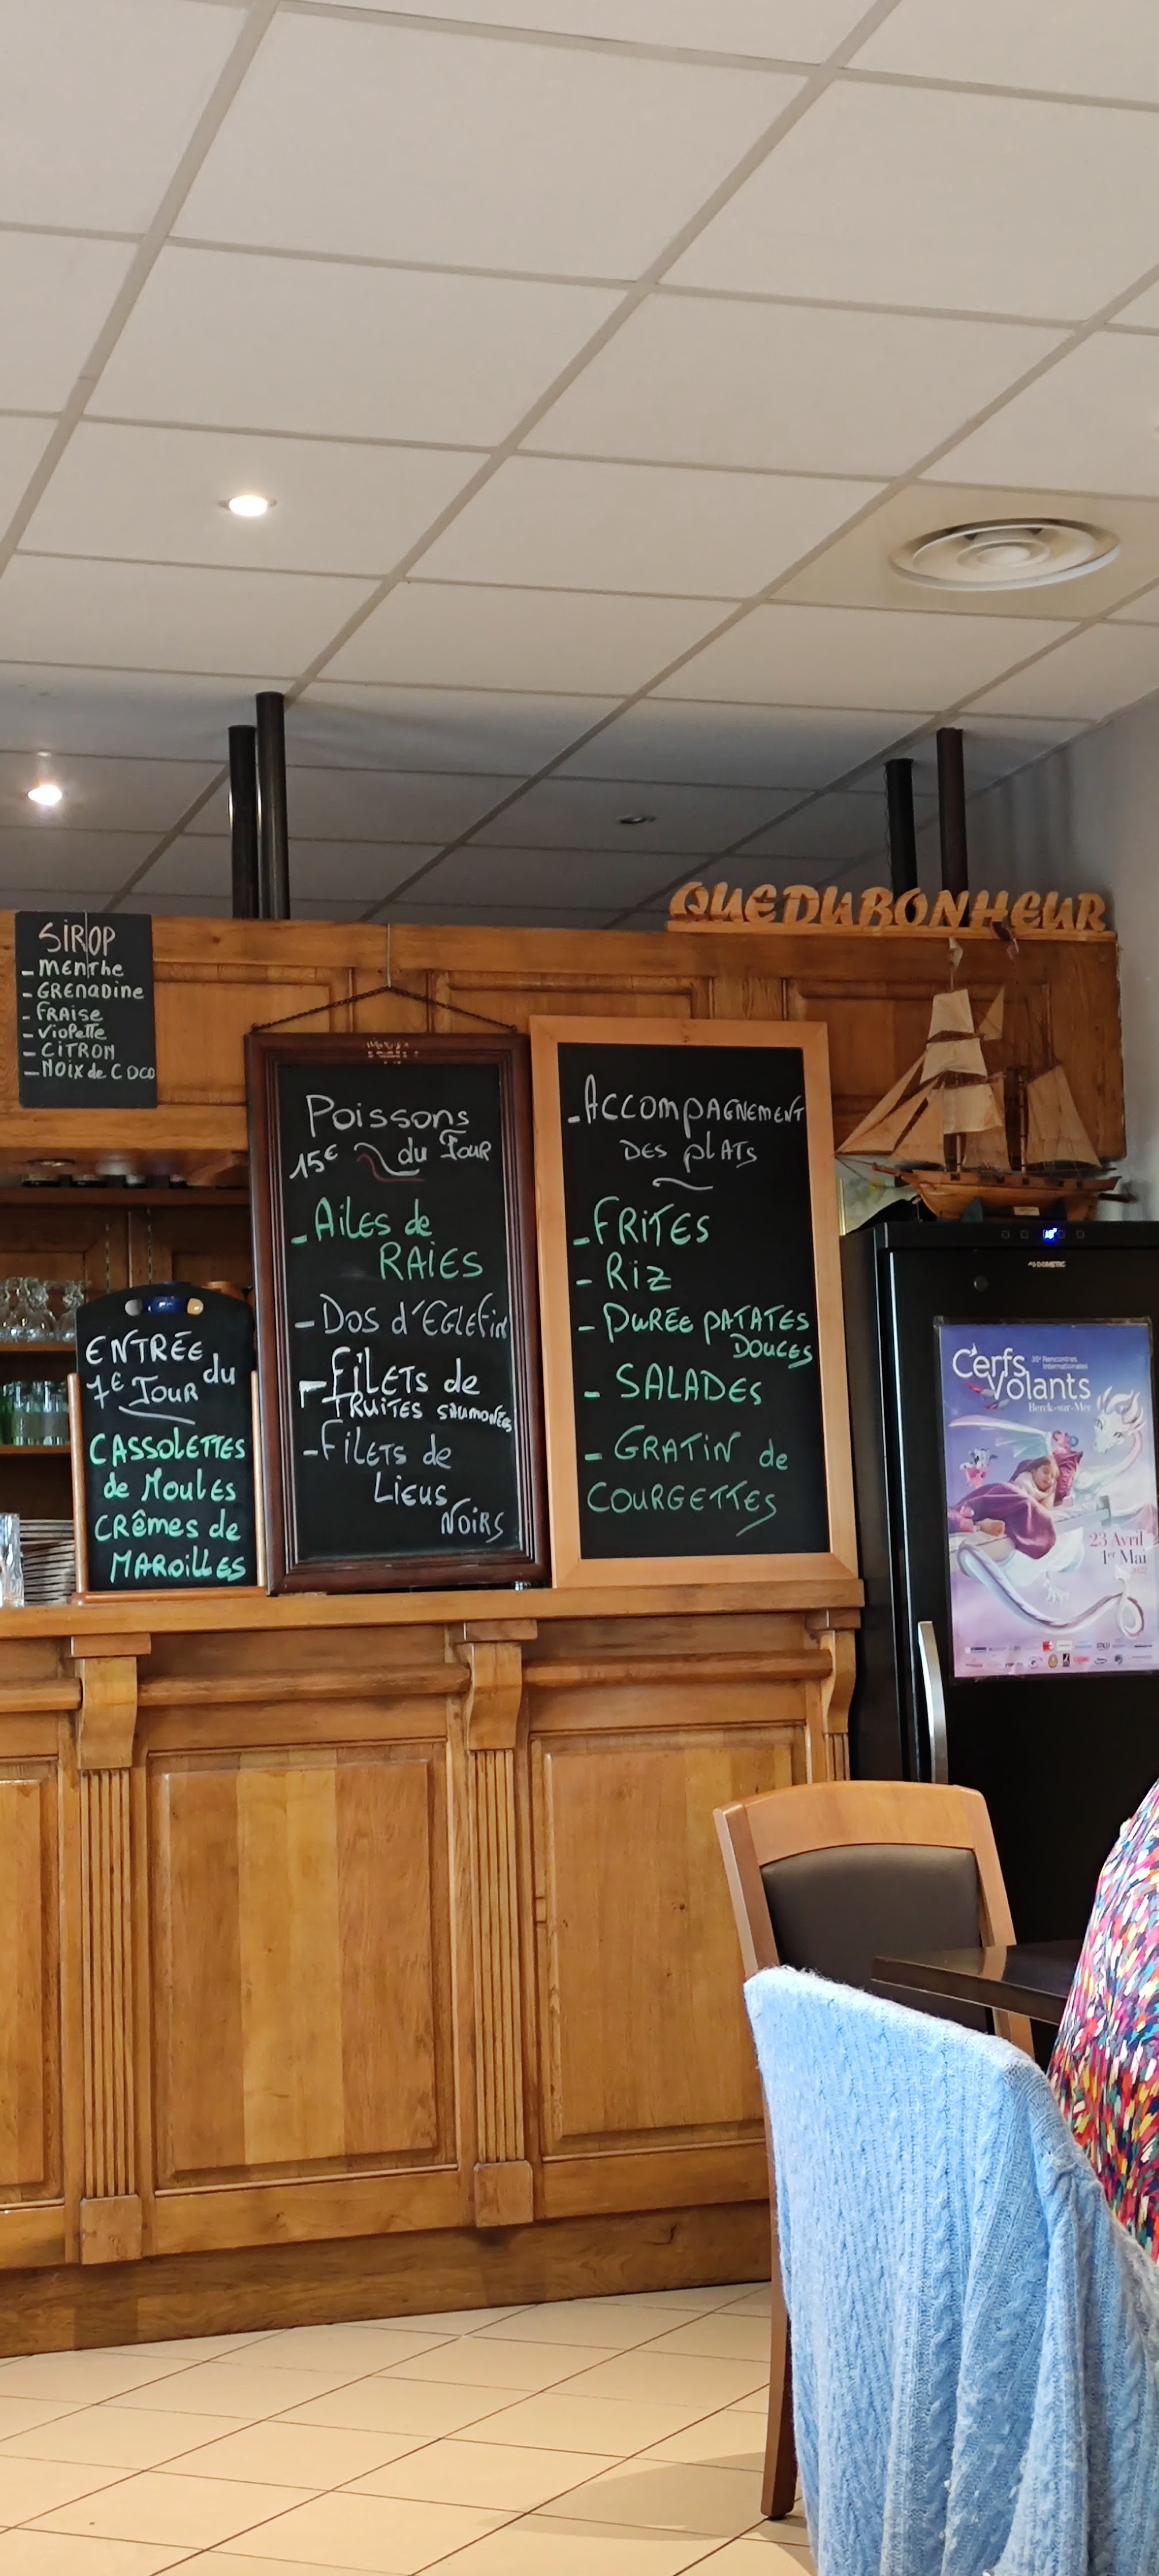 QUE DU BONHEUR
SIROP
- MENTHE
- GRENADINE
- FRAISE
- VIOLETTE
- CITRON
- NOIX de COCO
ENTRÉE
7€ du
JOUR
CASSOLETTES
de MOULES
CRÊMES de
MAROILLES
POISSONS
15€ du JOUR
- AILES de
RAIES
- DOS d'EGLEFIN
- FILETS de
TRUITES SAUMONÉES
- FILETS de
LIEUS
NOIRS
- ACCOMPAGNEMENT
DES PLATS
- FRITES
- RIZ
- PURÉE PATATES
DOUCES
- SALADES
- GRATIN de
COURGETTES
DOMETIC
Cerfs
Volants
Rencontres
Internationales
Berck-sur-Mer
23 Avril
1er Mai
2022